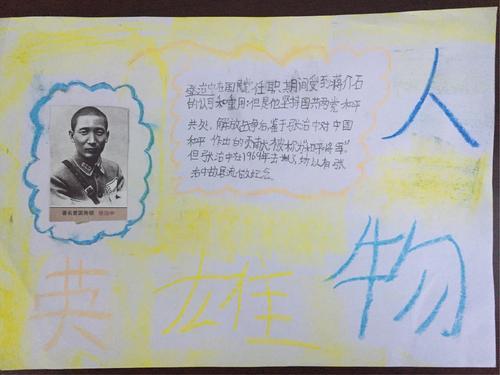 张治中在国民党任职期间受到蒋介石
的认可和重用,但是他坚持国共两党和平
共处,解放战争后,鉴于张治中对中国
和平作出的贡献被称为"和平将军"
但张治中在1969年去世,所以有张
治中故居先做纪念
著名爱国将领 张治中
人
物
英雄